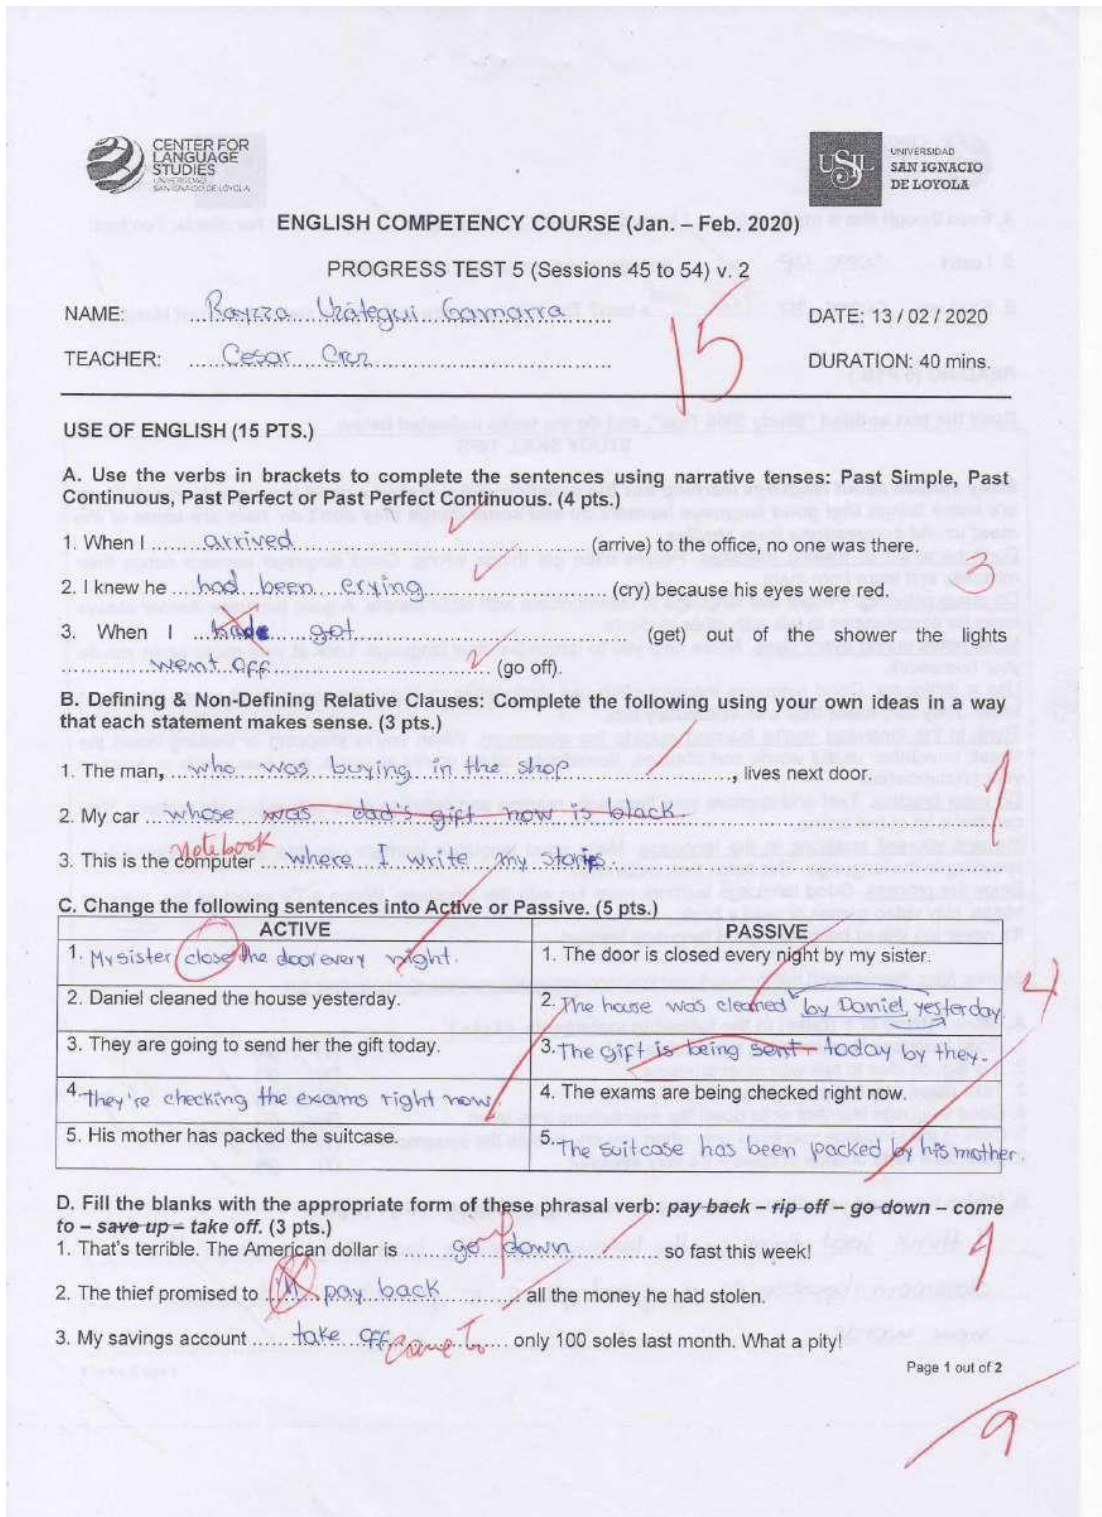 CENTER FOR
LANGUAGE
STUDIES
UNIVERSIDAD
SAN IGNACIO DE LOYOLA
USIL
UNIVERSIDAD
SAN IGNACIO
DE LOYOLA
ENGLISH COMPETENCY COURSE (Jan. – Feb. 2020)
PROGRESS TEST 5 (Sessions 45 to 54) v. 2
NAME: Gamarra
DATE: 13 / 02 / 2020
15
TEACHER: Cesar Cruz
DURATION: 40 mins.
USE OF ENGLISH (15 PTS.)
A. Use the verbs in brackets to complete the sentences using narrative tenses: Past Simple, Past
Continuous, Past Perfect or Past Perfect Continuous. (4 pts.)
1. When I arrived (arrive) to the office, no one was there.
3
2. I knew he had been crying (cry) because his eyes were red.
3. When I had got (get) out of the shower the lights
went off (go off).
B. Defining & Non-Defining Relative Clauses: Complete the following using your own ideas in a way
that each statement makes sense. (3 pts.)
1. The man, who was buying in the shop, lives next door.
1
2. My car whose was dad's gift now is black.
notebook
3. This is the computer where I write my stories.
C. Change the following sentences into Active or Passive. (5 pts.)
ACTIVE PASSIVE
1. My sister close the door every night. 1. The door is closed every night by my sister.
4
2. Daniel cleaned the house yesterday. 2. The house was cleaned by Daniel yesterday.
3. They are going to send her the gift today. 3. The gift is being sent today by they.
4. They're checking the exams right now. 4. The exams are being checked right now.
5. His mother has packed the suitcase. 5. The suitcase has been packed by his mother.
D. Fill the blanks with the appropriate form of these phrasal verb: pay back – rip off – go down – come
to – save up – take off. (3 pts.)
1. That's terrible. The American dollar is go down so fast this week!
1
2. The thief promised to pay back all the money he had stolen.
3. My savings account take off came to only 100 soles last month. What a pity!
Page 1 out of 2
9